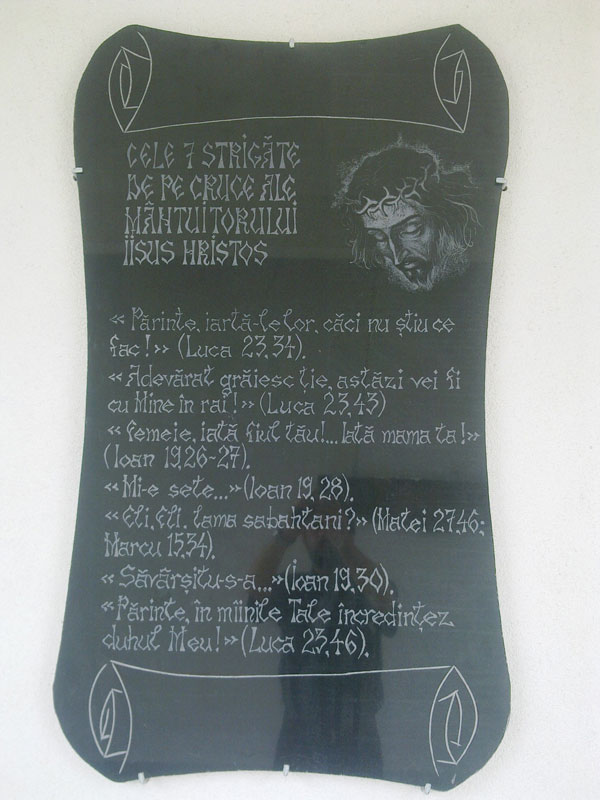 CELE 7 STRIGĂTE
DE PE CRUCE ALE
MÂNTUITORULUI
IISUS HRISTOS
«Părinte, iartă-le lor, căci nu știu ce
fac!» (Luca 23,34).
«Adevărat grăiesc ție, astăzi vei fi
cu Mine în rai!» (Luca 23,43)
«Femeie, iată fiul tău!...Iată mama ta!»
(Ioan 19,26-27).
«Mi-e sete...» (Ioan 19, 28).
«Eli, Eli, lama sabahtani?» (Matei 27,46;
Marcu 15,34).
«Săvârșitu-s-a...» (Ioan 19,30).
«Părinte, în mîinile Tale încredințez
duhul Meu!» (Luca 23,46).